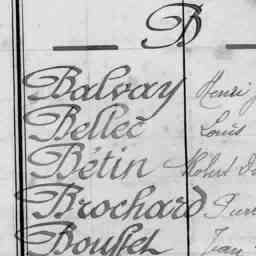 B
Balvay Henri
Bellec Louis
Bétin
Brochard
Bousset Jean